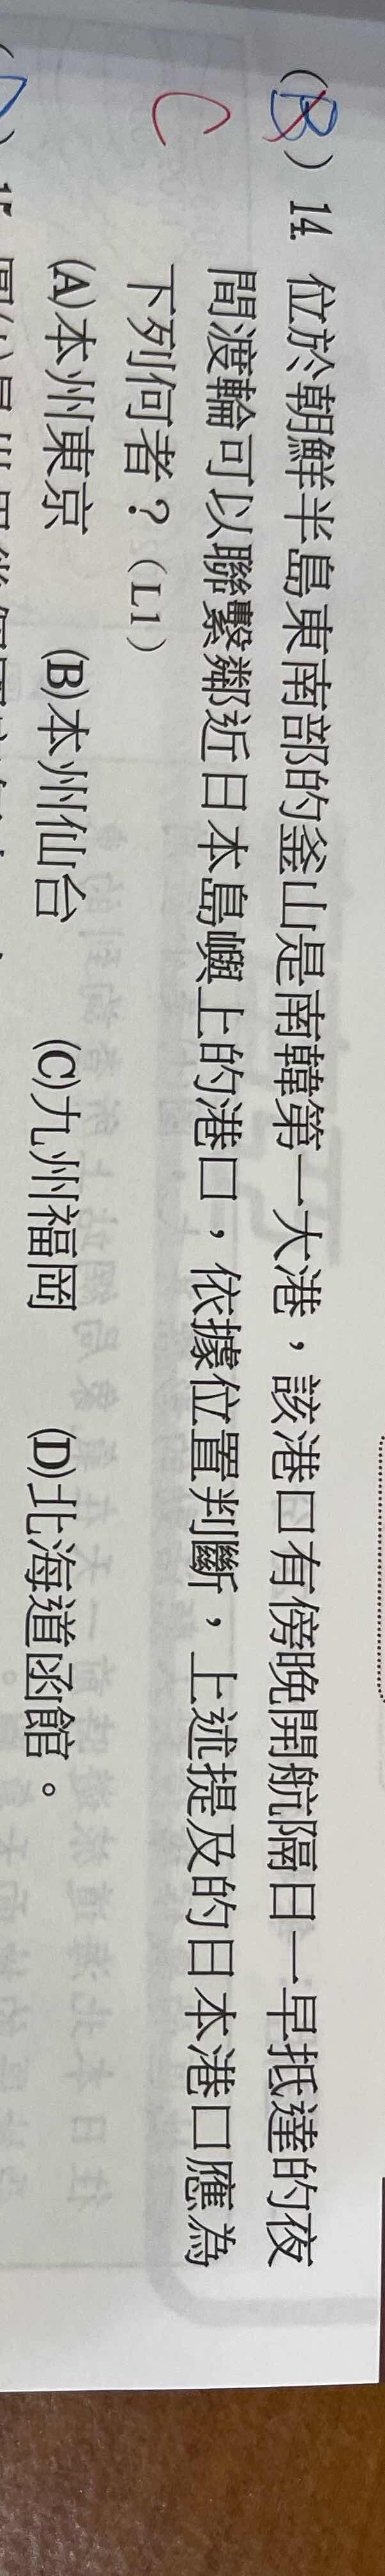 (B) 14. 位於朝鮮半島東南部的釜山是南韓第一大港，該港口有傍晚開航隔日一早抵達的夜
C
間渡輪可以聯繫鄰近日本島嶼上的港口，依據位置判斷，上述提及的日本港口應為
下列何者？（L1）
(A)本州東京 (B)本州仙台 (C)九州福岡 (D)北海道函館。
) 15.